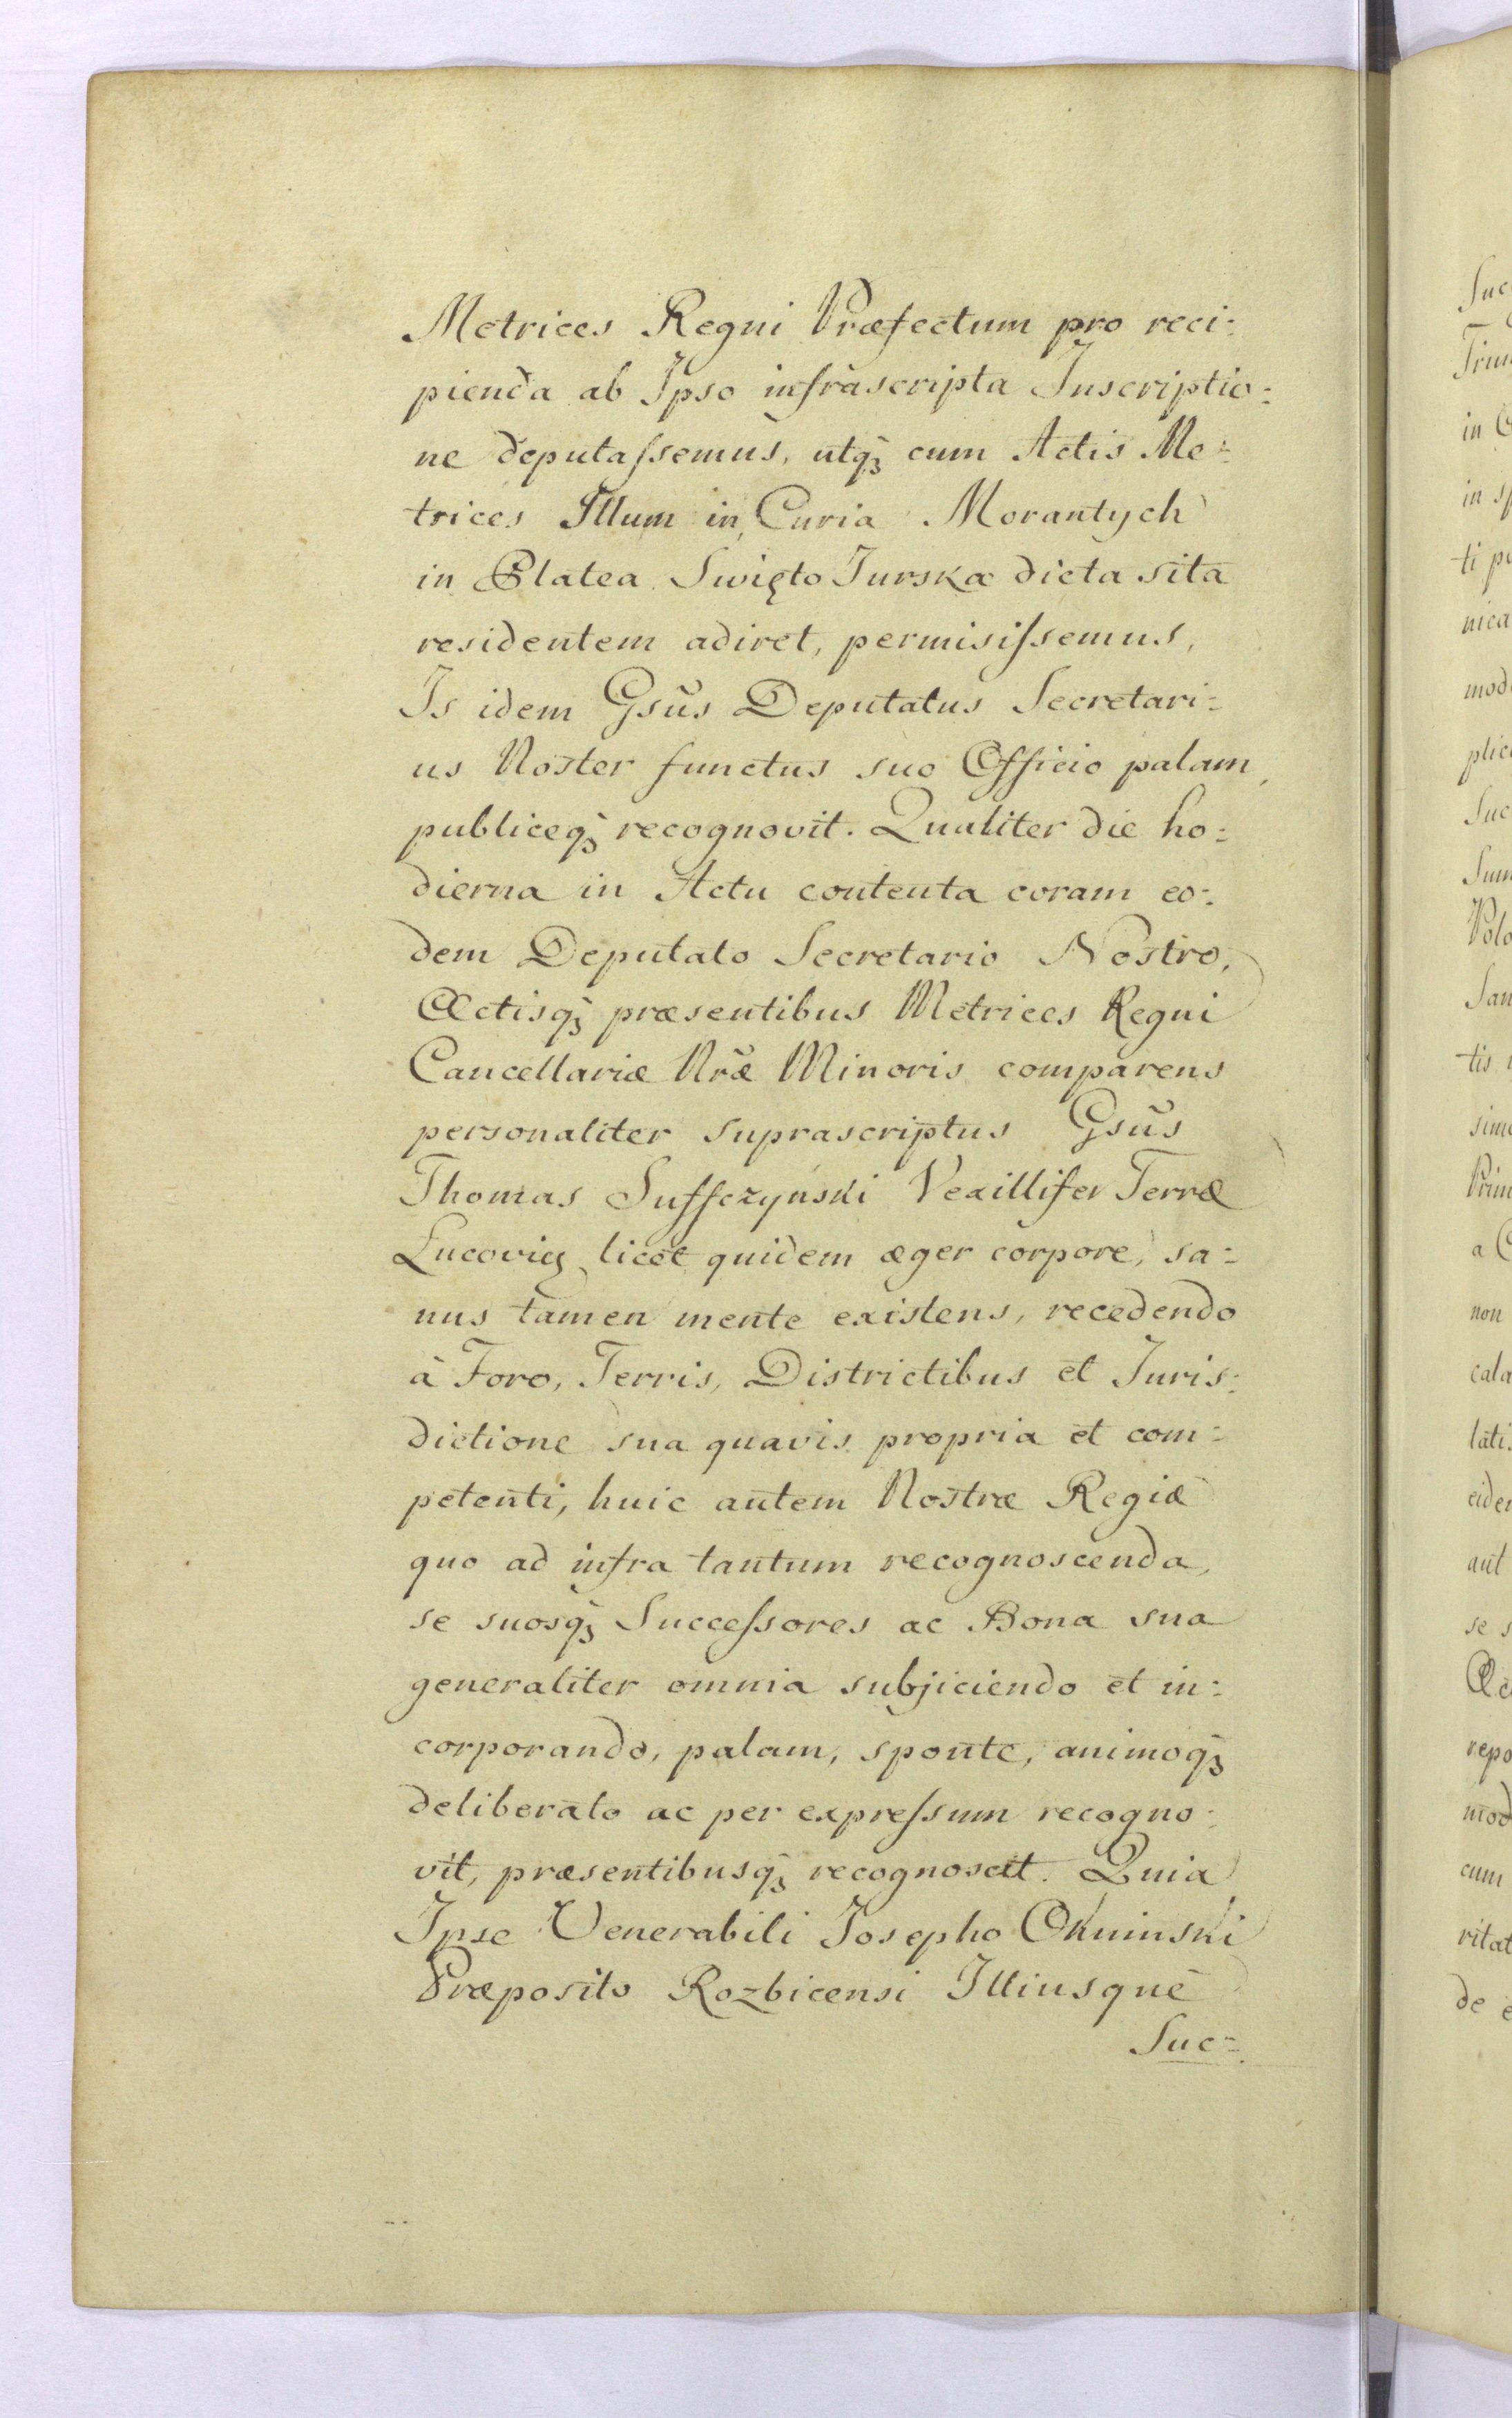 Metrices Regni Præfectum pro reci:
pienda ab Ipso infrascripta Inscriptio:
ne deputaſsemus, utq̃ꝫ cum Actis Me:
trices Illum in Curia Morantych
in Platea Swięto Jurska dicta sita
residentem adiret, permisiſsemus,
Is idem Gsũs Deputatus Secretari:
us Noster functus suo Officio palam,
publiceq̃ꝫ recognovit. Qualiter die ho:
dierna in Actu contenta coram eo:
dem Deputato Secretario Nostro,
Actisq̃ꝫ præsentibus Metrices Regni
Cancellariæ Nr̃æ Minoris comparens
personaliter suprascriptus Gsũs
Thomas Suffczyński Vexillifer Terræ
Lucovię licet quidem æger corpore, sa:
nus tamen mente existens, recedendo
à Foro, Terris, Districtibus et Juris:
dictione sua quavis propria et com:
petenti, huic autem Nostræ Regiæ
quo ad infra tantum recognoscenda,
se suosq̃ꝫ Succeſsores ac Bona sua
generaliter omnia subjiciendo et in:
corporando, palam, sponte, animoq̃ꝫ
deliberato ac per expreſsum recogno:
vit, præsentibusq̃ꝫ recognoscit. Quia
Ipse Venerabili Josepho Okninski
Præposito Rozbicensi Illiusque
Suc:
Suc
in
in
ti
nica
mod
plic
Suc
Sum
Polo
San
tis
sim
Prim
a
non
cala
lati
eide
aut
se s
repo
mod
cum
ritat
de e